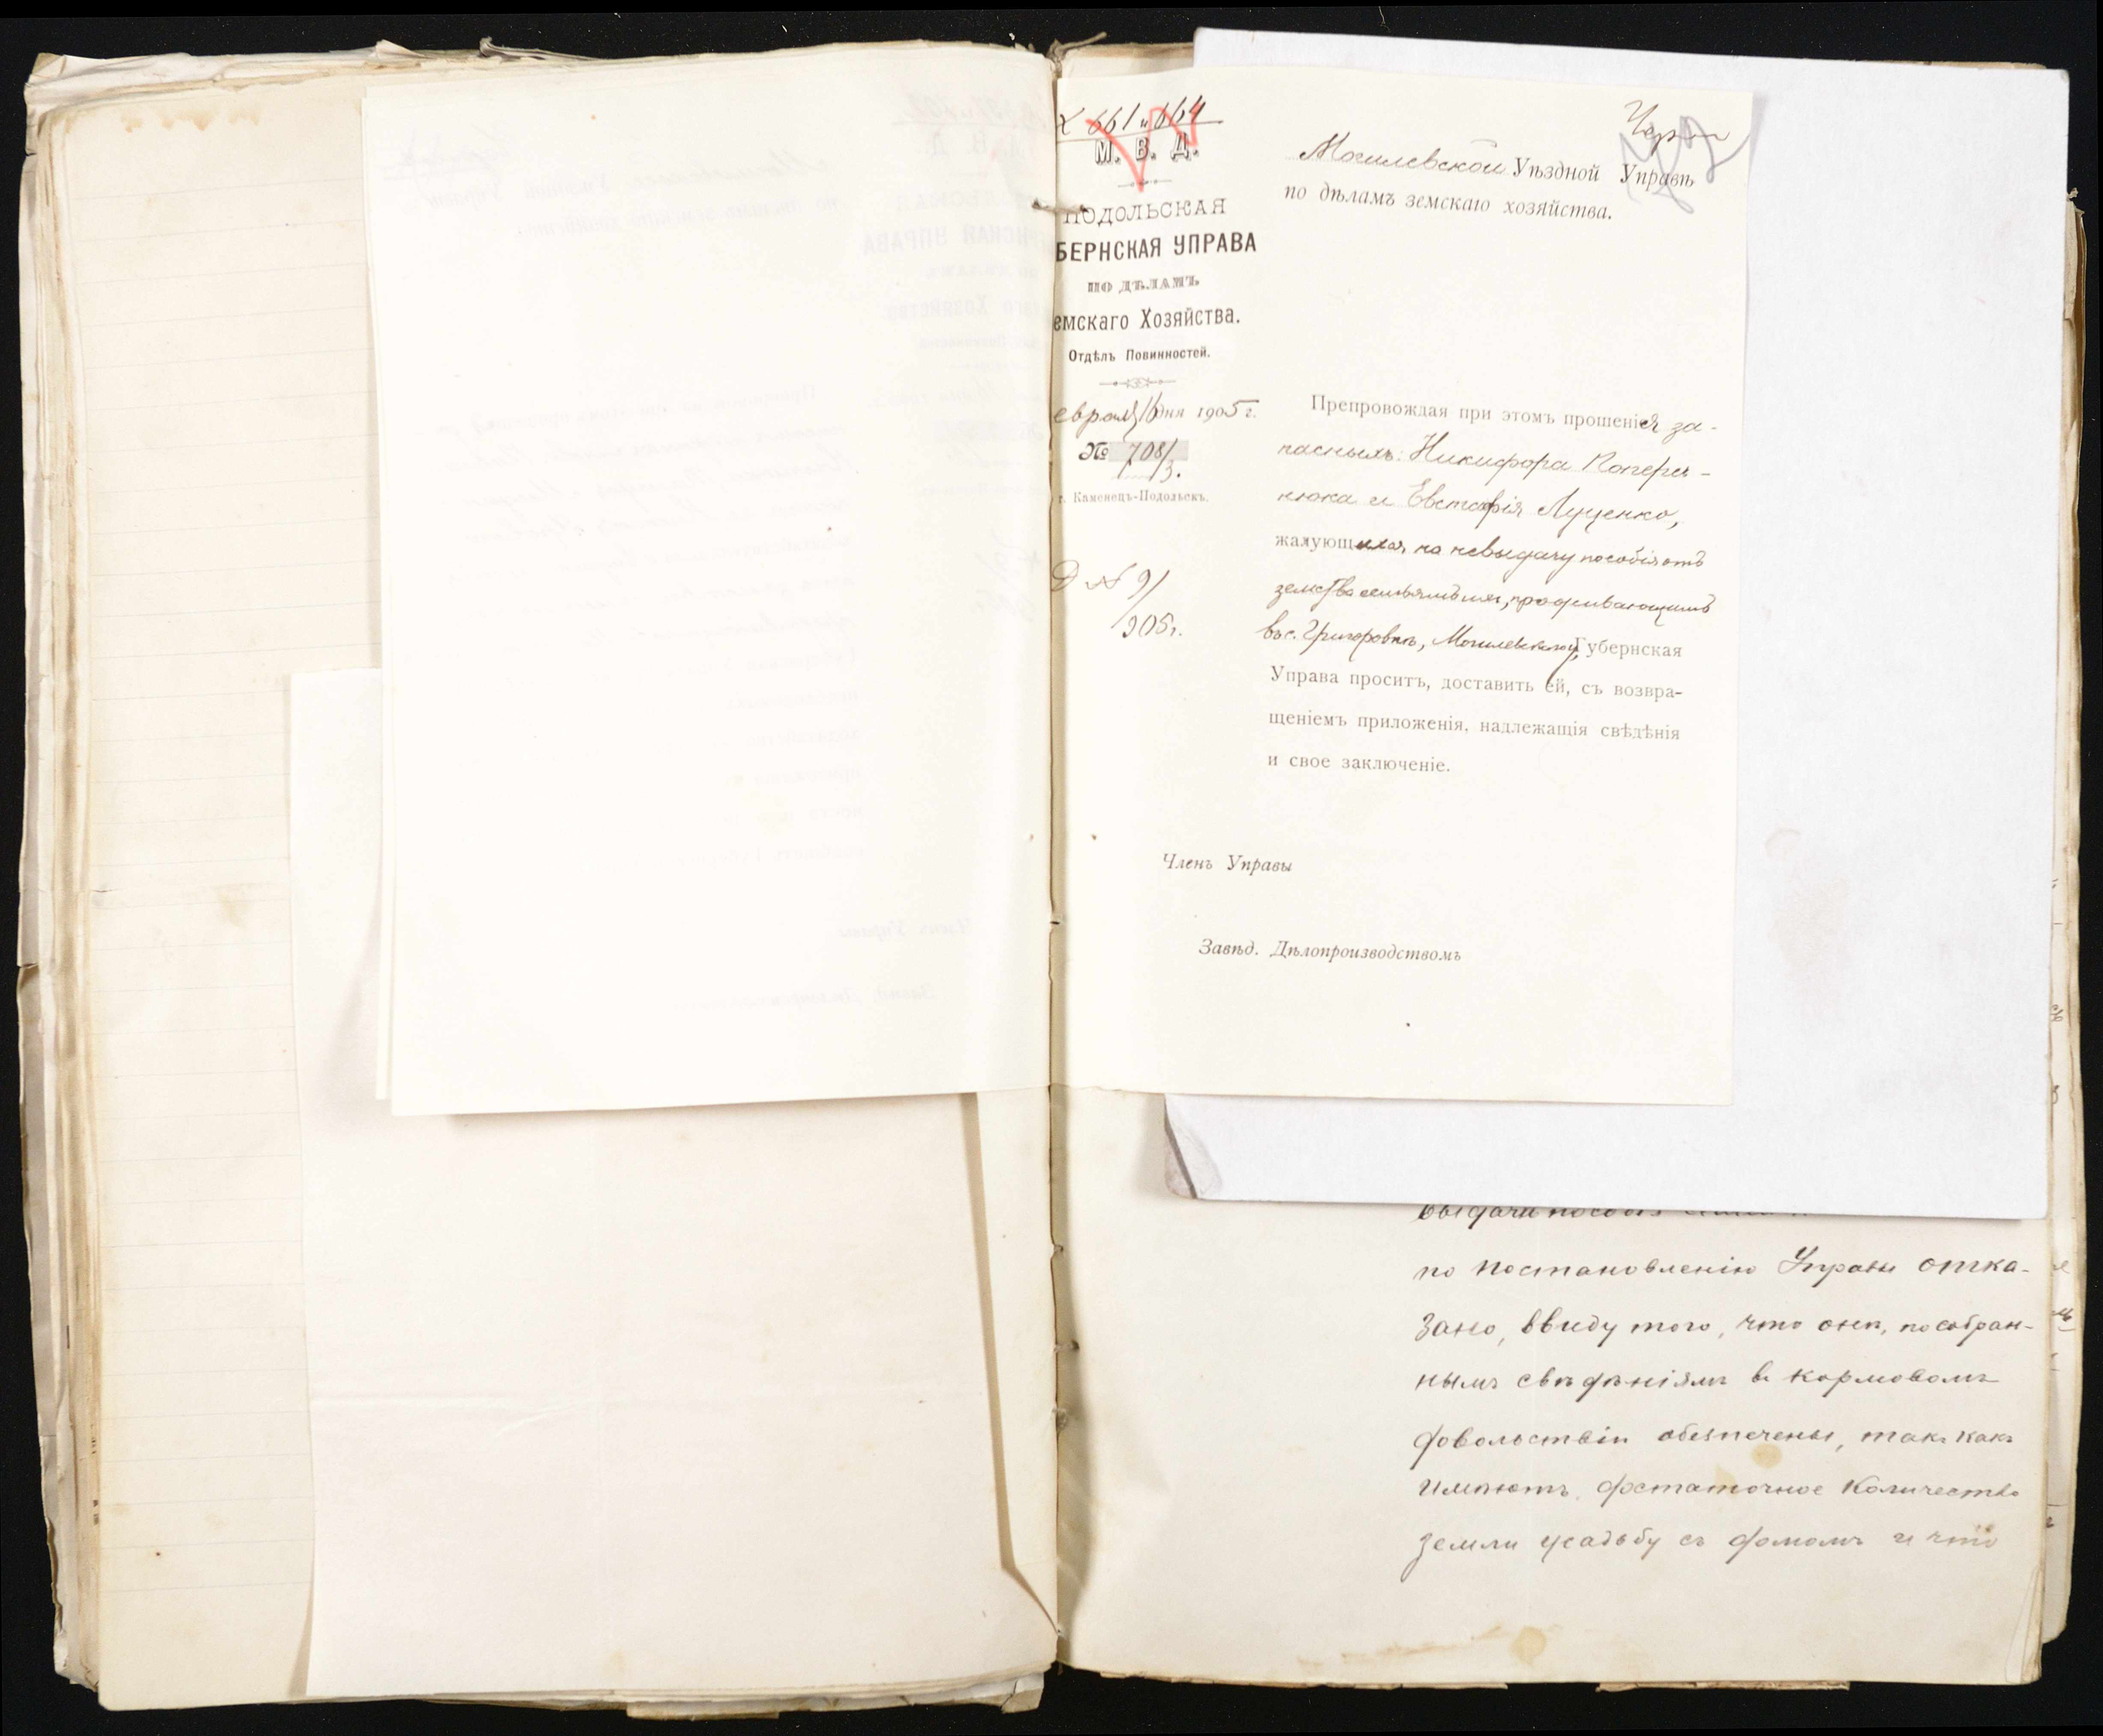 661 и 664
М. В. Д.
ПОДОЛЬСКАЯ
БЕРНСКАЯ УПРАВА
ПО ДѢЛАМЪ
емскаго Хозяйства.
Отдѣлъ Повинностей.
евраля 16 дня 1905 г.
№ 708/3.
г. Каменецъ-Подольскъ.
Д № 91/
905 г.
Могилевской Уѣздной Управѣ
по дѣламъ земскаго хозяйства.
Препровождая при этомъ прошенія за-
пасныхъ: Никифора Попереч-
нюка и Евстафія Луценко,
жалующихся на невыдачу пособія отъ
земства семьямъ ихъ, проживающимъ
въ с. Григоровкѣ, Могилевскаго у, Губернская
Управа проситъ, доставить ей, съ возвра-
щеніемъ приложенія, надлежащія свѣдѣнія
и свое заключеніе.
Членъ Управы
Завѣд. Дѣлопроизводствомъ
выдачи пособія
по постановленію Управы отка-
зано, ввиду того, что они, по собран-
нымъ свѣдѣніямъ въ кормовомъ
довольствіи обезпечены, такъ какъ
имѣютъ достаточное количество
земли усадьбу съ домомъ и что